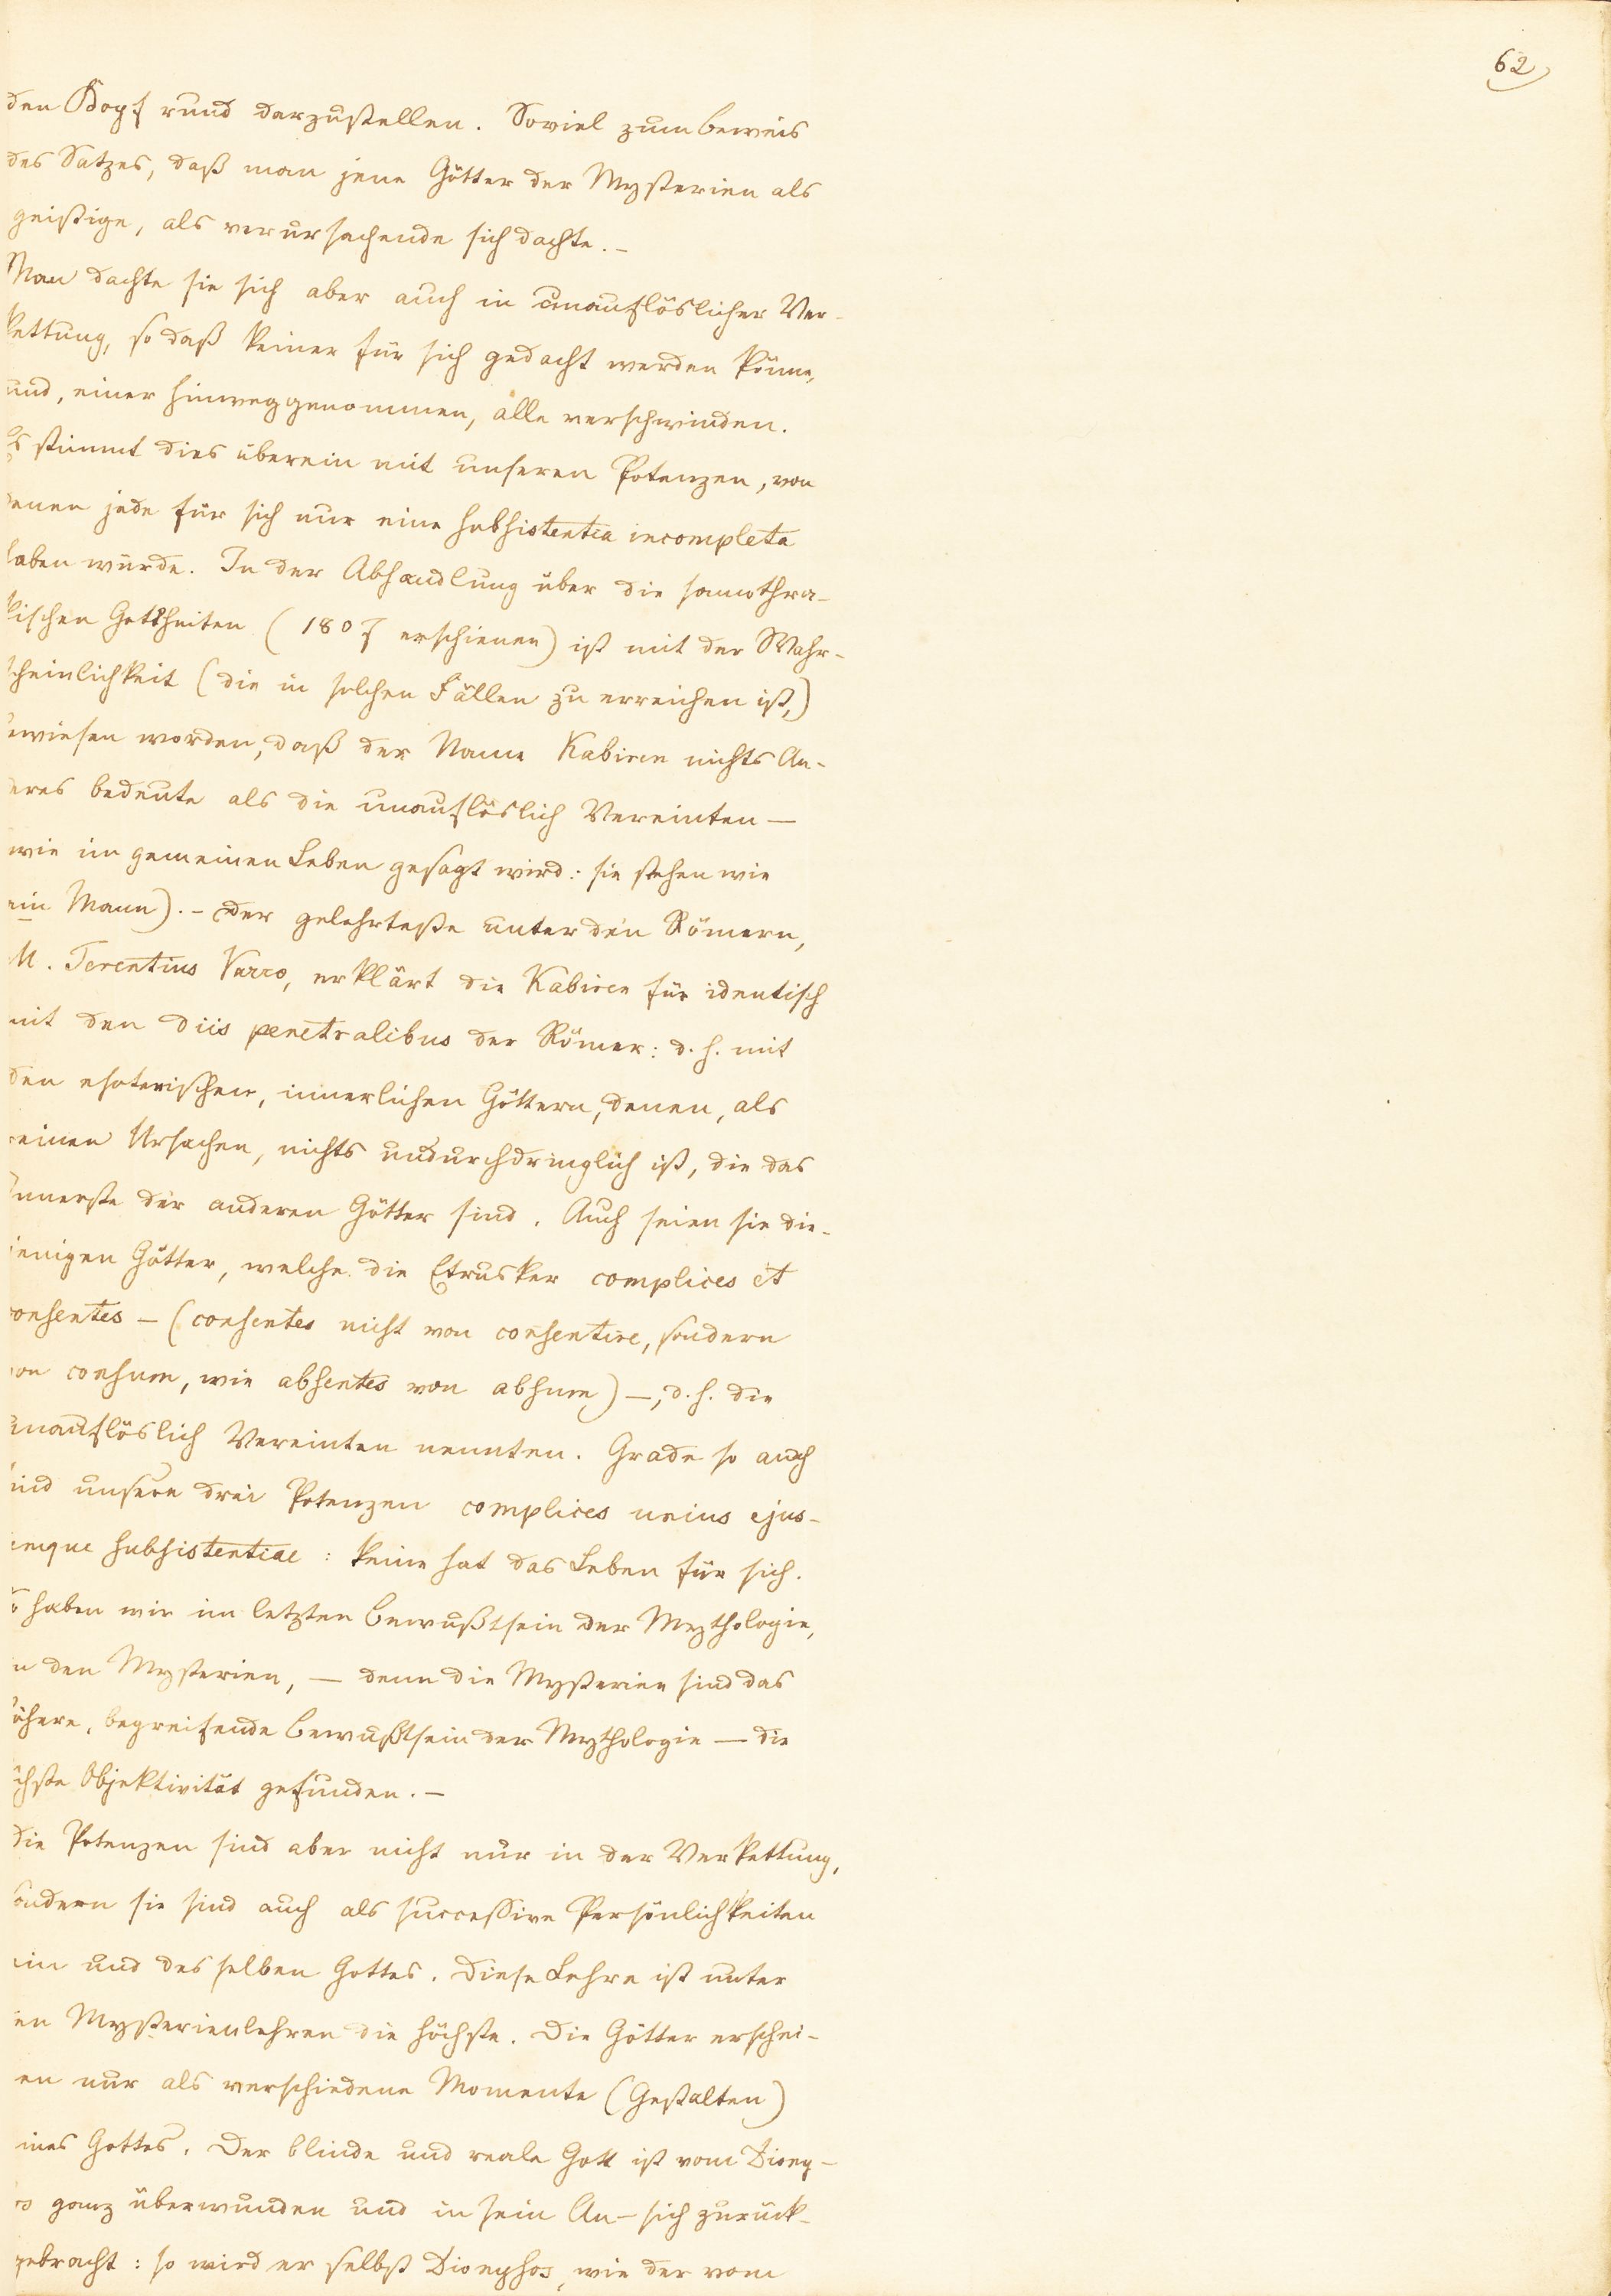 62
den Kopf rund darzustellen. Soviel zum Beweis
des Satzes, daß man jene Götter der Mysterien als
geistige, als verursachende sich dachte. –
Man dachte sie sich aber auch in unauflöslicher Ver-
kettung, so daß keiner für sich gedacht werden könne,
und, einer hinweggenommen, alle verschwinden.
Es stimmt dies überein mit unseren Potenzen, von
denen jede für sich nur eine subsistentia incompleta
haben würde. In der Abhandlung über die samothra-
kischen Gottheiten (180 erschienen) ist mit der Wahr-
scheinlichkeit (die in solchen Fällen zu erreichen ist,)
ewiesen worden, daß der Name Kabiren nichts An-
deres bedeute als die unauflöslich Vereinten —
wie im gemeinen Leben gesagt wird: sie stehen wie
ein Mann). – Der gelehrteste unter den Römern,
M. Terentius Varro, erklärt die Kabiren für identisch
mit den diis penetralibus der Römer: d. h. mit
den esoterischen, innerlichen Göttern, denen, als
reinen Ursachen, nichts undurchdringlich ist, die das
Innerste der anderen Götter sind. Auch seien sie die-
jenigen Götter, welche die Etrusker complices et
consentes – (consentes nicht von consentire, sondern
von consum, wie absentes von absum) –, d. h. die
unauflöslich Vereinten nennten. Grade so auch
sind unsere drei Potenzen complices unius ejus-
emque subsistentiae: keine hat das Leben für sich.
So haben wir im letzten Bewußtsein der Mythologie,
in den Mysterien, — denn die Mysterien sind das
höhere, begreifende Bewußtsein der Mythologie — die
höchste Objektivität gefunden. –
Die Potenzen sind aber nicht nur in der Verkettung,
sondern sie sind auch als successive Persönlichkeiten
ein und desselben Gottes. Diese Lehre ist unter
den Mysterienlehren die höchste. Die Götter erschei-
nen nur als verschiedene Momente (Gestalten)
eines Gottes. Der blinde und reale Gott ist vom Diony-
sos ganz überwunden und in sein An-sich zurück-
gebracht: so wird er selbst Dionysos, wie der vom